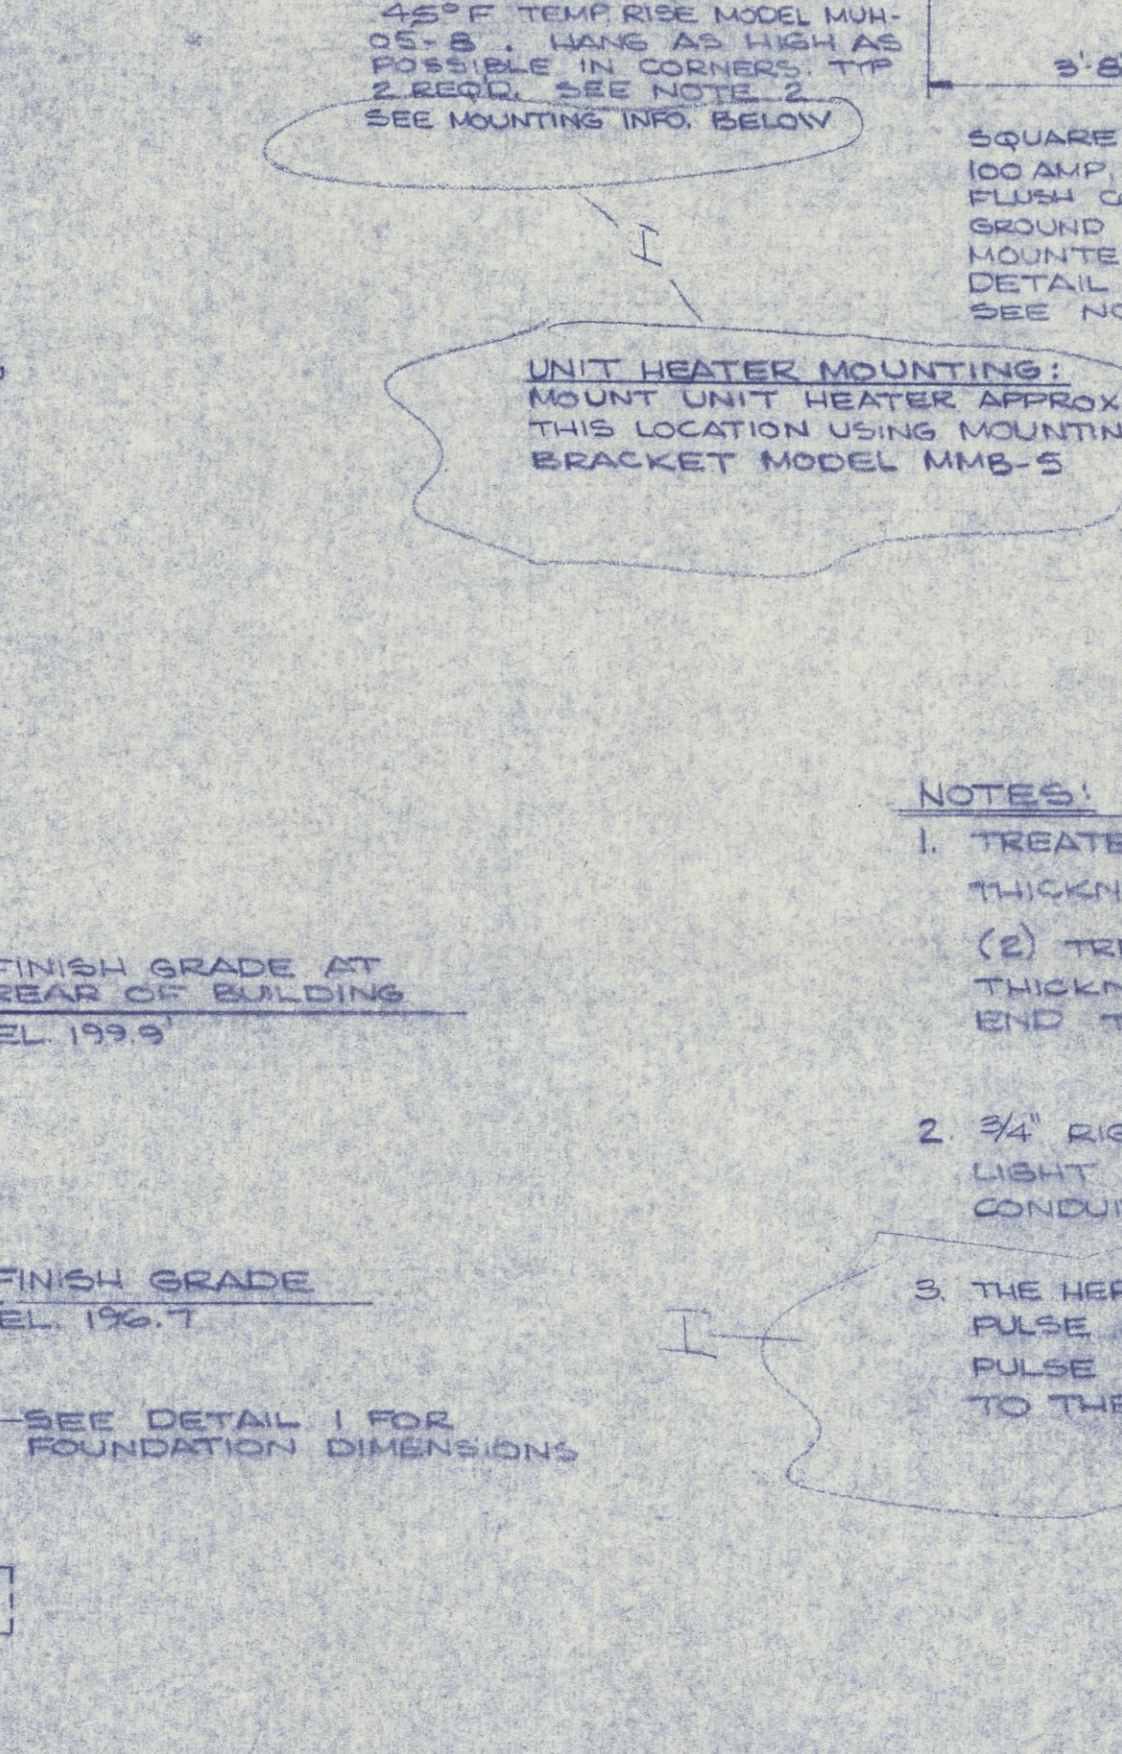 45°F TEMP. RISE MODEL MUH-
05-8 . HANG AS HIGH AS
POSSIBLE IN CORNERS. TYP
2 REQD. SEE NOTE 2
SEE MOUNTING INFO. BELOW
I
3'-8
SQUARE
100 AMP,
FLUSH
GROUND
MOUNTE
DETAIL
SEE NO
UNIT HEATER MOUNTING:
MOUNT UNIT HEATER APPROX
THIS LOCATION USING MOUNTIN
BRACKET MODEL MMB-5
NOTES:
1. TREATE
THICKN
(2) TRE
THICKN
END T
2. 3/4" RIG
LIGHT
CONDUI
3. THE HER
PULSE
PULSE
TO THE
I
FINISH GRADE AT
REAR OF BUILDING
EL. 199.9'
FINISH GRADE
EL. 196.7
SEE DETAIL 1 FOR
FOUNDATION DIMENSIONS